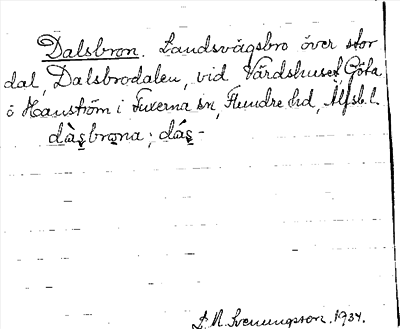 Dalsbron. Landsvägsbro över stor
dal, Dalsbrodalen, vid Värdshuset Göta
ö Hanström i Fuxerna sn, Flundre hd, Älfsb. l.
dàs̬brona; dás̬-
S. M. Svenungsson. 1934.